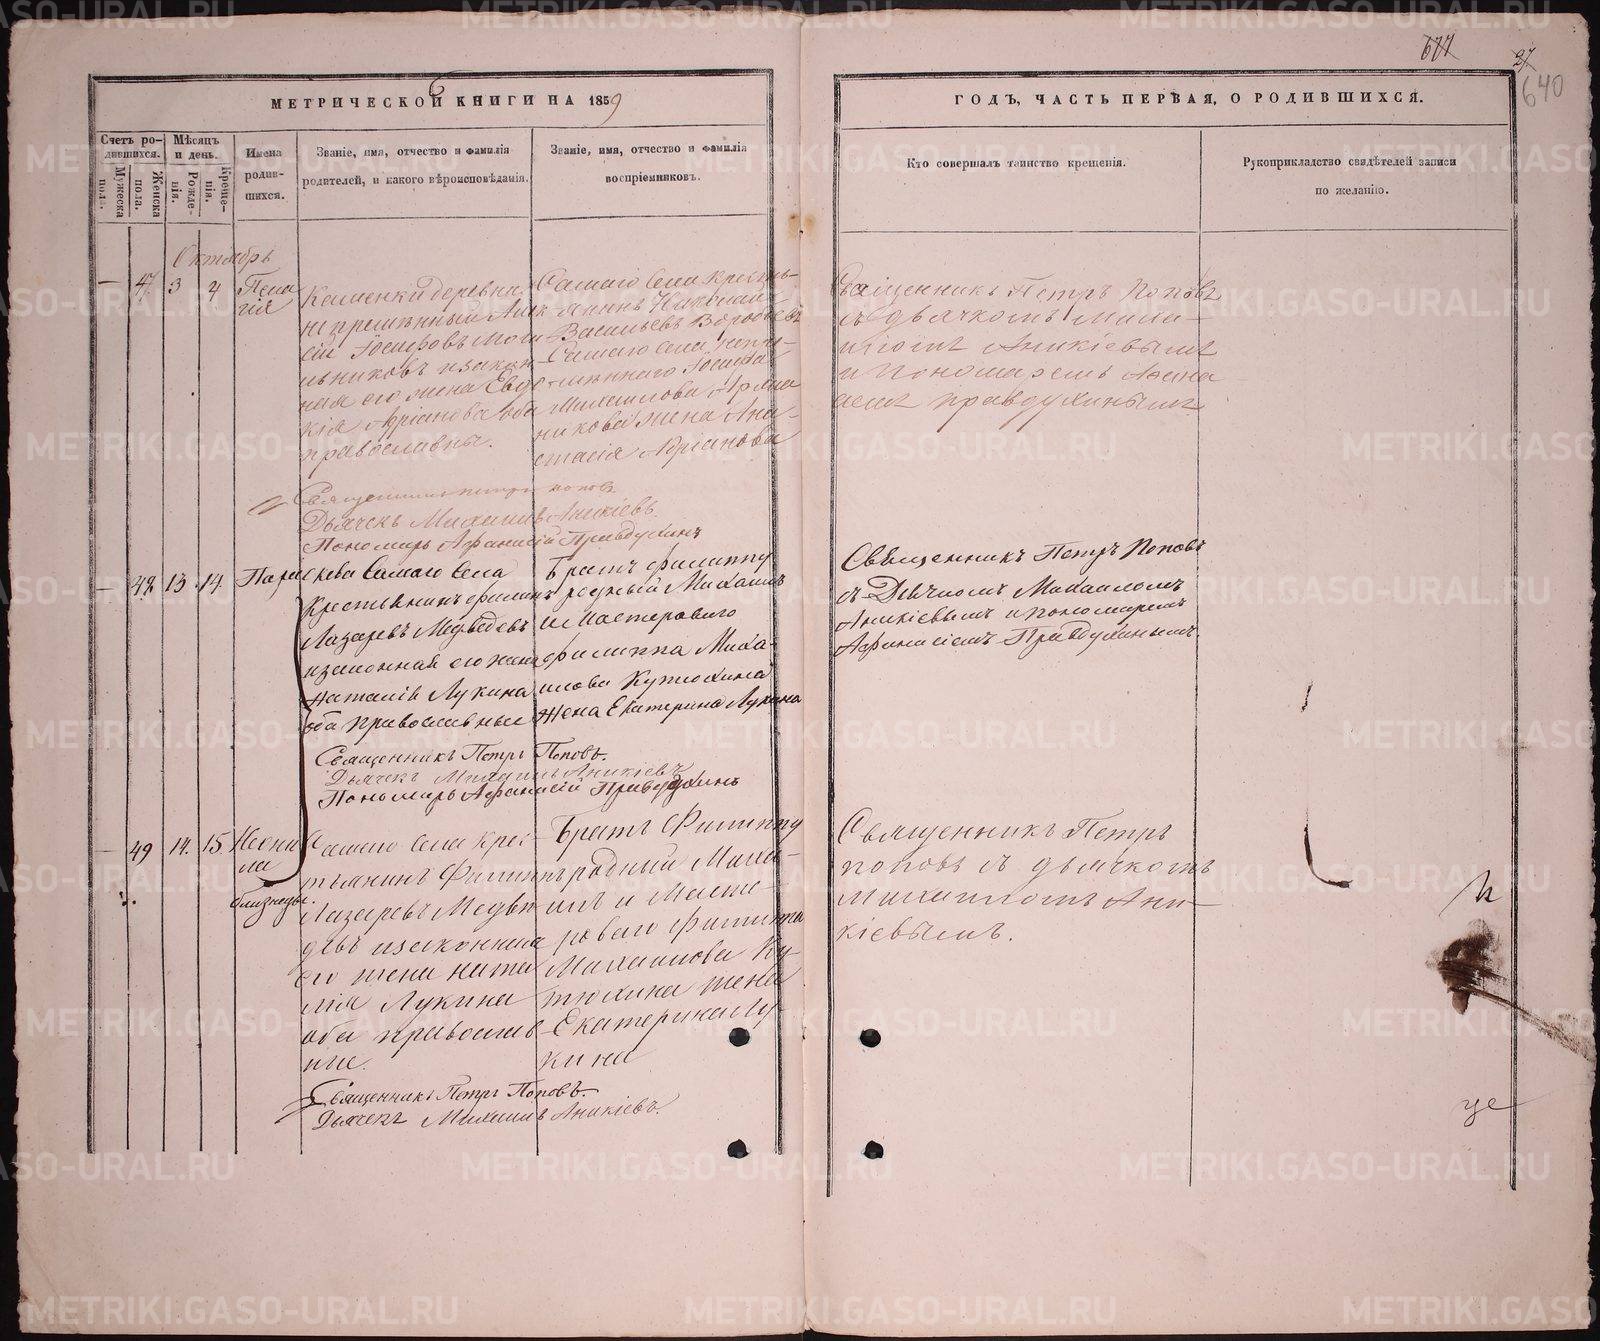 677
27
640
МЕТРИЧЕСКОЙ КНИГИ НА 1859
ГОДЪ, ЧАСТЬ ПЕРВАЯ, О РОДИВШИХСЯ.
Счетъ родившихся.
Мужеска пола.
Женска пола.
Мѣсяцъ и день.
Рожденія.
Крещенія.
Имена родившихся.
Званіе, имя, отчество и фамилія
родителей, и какого вѣроисповѣданія.
Званіе, имя, отчество и фамилія
воспріемниковъ.
Кто совершалъ таинство крещенія.
Рукоприкладство свидѣтелей записи
по желанію.
Октябрь
— 47 3 4 Пела
гія
Каменки деревни
непремѣнный Алек
сій
ьниковъ изакон
ная его жена Евдо
кія Адріанова оба
православна.
Самаго Села Кресть-
янинъ Николай
Васильевъ Воробьевъ
Самаго Села непре-
мѣннаго Іосифа
Михаилова
никова жена Ана-
стасія Адріанова
Священникъ Петръ Поповъ
съ дьячкомъ Миха-
иломъ Аникіевымъ
и Пономаремъ Афана
семъ Правдухинымъ
Священникъ Петръ Поповъ
Дьячекъ Михаилъ Аникіевъ.
Пономарь Афанасій Правдухинъ
— 48 13 14 Параскева
Самаго Села
Крестьянинъ Филипъ
Лазаревъ Медведевъ
изаконная его жена
Наталія Лукина
оба православные
Братъ Филиппу
родный Михаилъ
и Мастероваго
Филиппа Миха-
илова Кутюхина
Жена Екатерина Лукина
Священникъ Петръ Поповъ
съ Дьячкомъ Михаиломъ
Аникіевымъ и Пономаремъ
Афанасіемъ Правдухинымъ.
Священникъ Петръ Поповъ.
Дьячекъ Михаилъ Аникіевъ
Пономарь Афанасій Правдухинъ
— 49 14. 15. Неони
ла
близнецы.
Самаго Села Крес-
тьянинъ Филипъ
Лазаревъ Медвѣ
девъ изаконная
его жена Ната
лія Лукина
оба православ-
ные.
Братъ Филиппу
родный Миха-
илъ и Масте-
роваго Филиппа
Михаилова Ку-
тюхина жена
Екатерина Лу-
кина
Священникъ Петръ
Поповъ съ дьячкомъ
Михаиломъ Ани-
кіевымъ.
Священникъ Петръ Поповъ.
Дьячекъ Михаилъ Аникіевъ.
METRIKI.GASO-URAL.RU